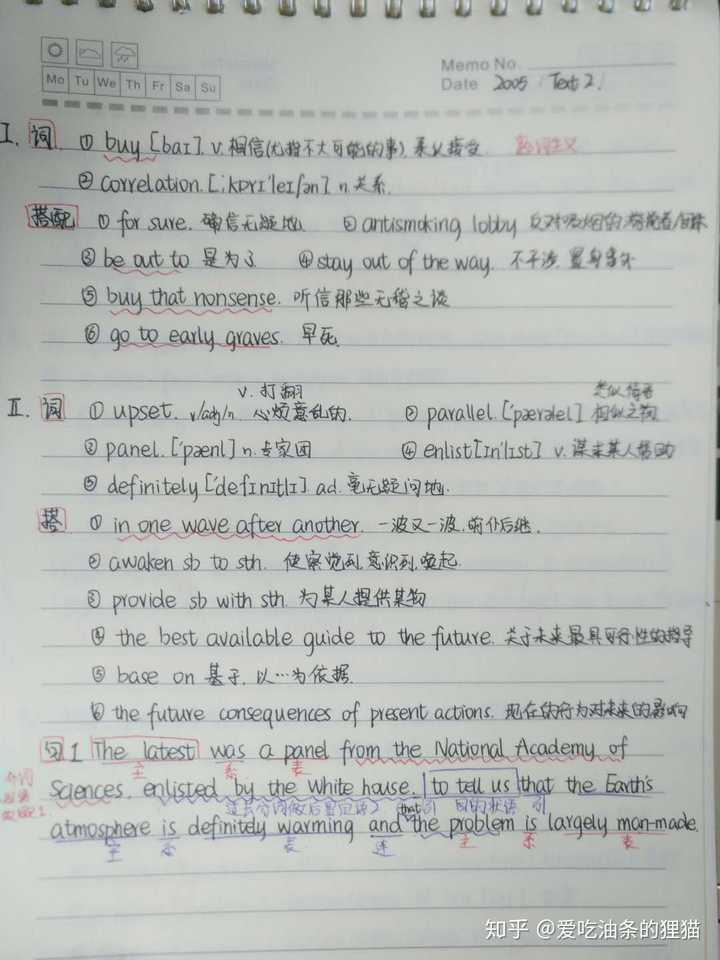 Memo No.
Mo Tu We Th Fr Sa Su
Date 2005 Text 2
I. 词 ① buy [baɪ]. v. 相信(尤指不大可能的事).
② correlation. [ˌkɒrɪ'leɪʃən] n. 关系.
搭配 ① for sure. 确信无疑地. ② antismoking lobby 反对吸烟的
③ be out to 是为了 ④ stay out of the way. 不干涉. 置身事外
⑤ buy that nonsense. 听信那些无稽之谈
⑥ go to early graves. 早死.
v. 打翻
II. 词 ① upset. v/adj/n. 心烦意乱的. ② parallel. ['pærəlel] 相似之物
③ panel. ['pænl] n. 专家团 ④ enlist [ɪn'lɪst] v. 谋求某人帮助
⑤ definitely ['defɪnɪtlɪ] ad. 毫无疑问地.
搭 ① in one wave after another. 一波又一波. 前仆后继.
② awaken sb to sth. 使察觉到. 意识到. 唤起.
③ provide sb with sth. 为某人提供某物
④ the best available guide to the future. 关于未来最具可行性的指导
⑤ base on 基于. 以…为依据.
⑥ the future consequences of present actions. 现在的行为对未来的影响
句1 The latest was a panel from the National Academy of
主 系 表
Sciences. enlisted by the white house. to tell us that the Earth's
过去分词做后置定语 that 引 目的状语 引
atmosphere is definitely warming and the problem is largely man-made.
主 系 表 连 主 系 表
知乎 @爱吃油条的狸猫